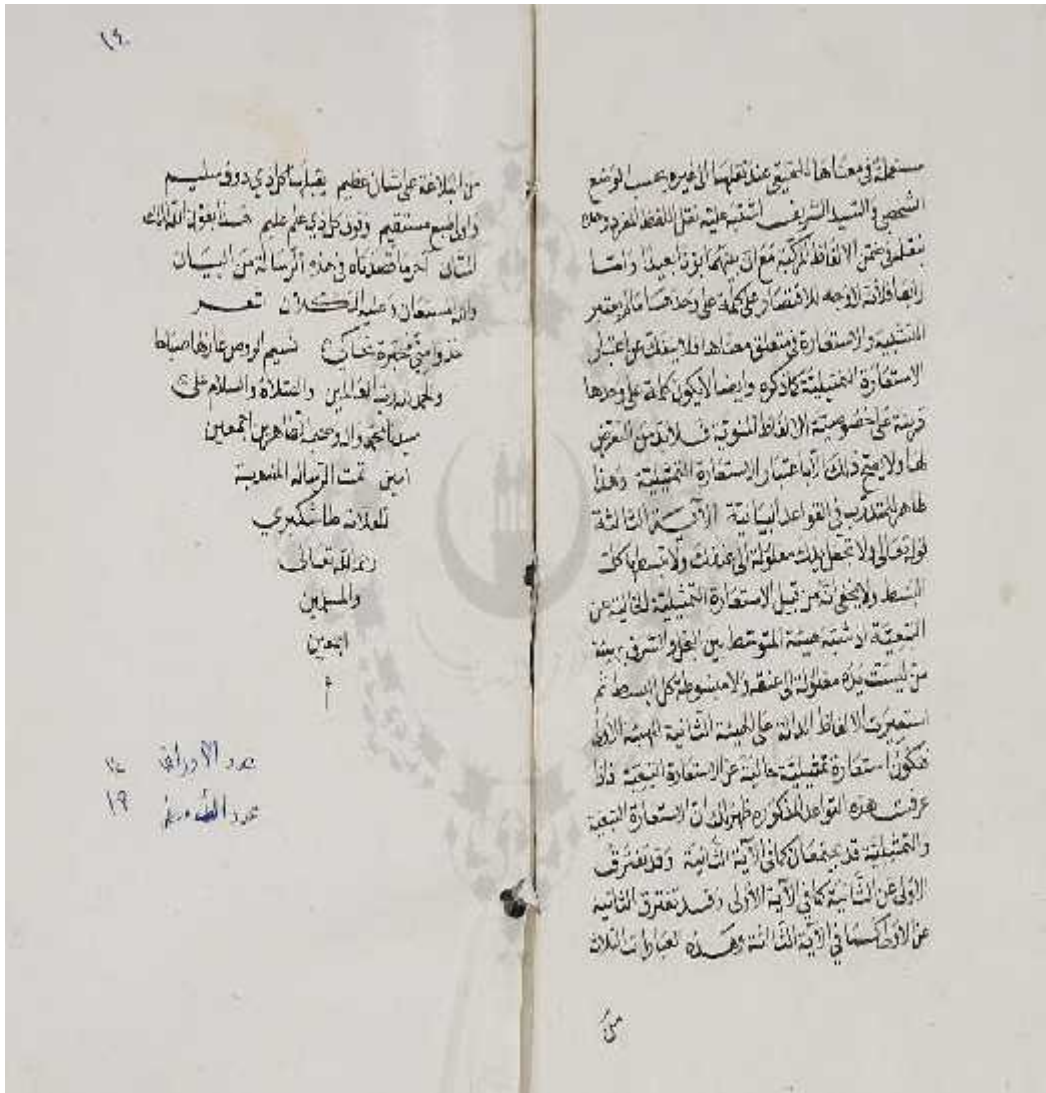 مستعملة في معناها الحقيقي عند نقلها الى غيره بحسب الوضع
الشخصي والسيد الشريف اشتبه عليه نقل اللفظ المفرد وحده
بنقله في ضمن الالفاظ المركبة مع ان بينهما بونا بعيدا واما
رابعا فلانه لا وجه للاقتصار على كلمة على وحدها ما لم يعتبر
التشبيه والاستعارة في متعلق معناها فلا ينفك عن اعتبار
الاستعارة التمثيلية كما ذكره وايضا لا يكون كلمة على وحدها
قرينة على خصوصية الالفاظ المنوية فلا بد من التعرض
لها ولا يصح ذلك الا باعتبار الاستعارة التمثيلية وهذا
ظاهر للمتدرب في القواعد البيانية الآية الثالثة
قوله تعالى ولا تجعل يدك مغلولة الى عنقك ولا تبسطها كل
البسط ولا يخفى انه من قبيل الاستعارة التمثيلية الخالية عن
التبعية اذ شبه هيئة المتوسط بين البخل والسرف بهيئة
من ليست يده مغلولة الى عنقه ولا مبسوطة كل البسط ثم
استعيرت الالفاظ الدالة على الهيئة الثانية للهيئة الاولى
فتكون استعارة تمثيلية خالية عن الاستعارة التبعية فاذا
عرفت هذه القواعد المذكورة ظهر لك ان الاستعارة التبعية
والتمثيلية قد يجتمعان كما في الآية الثانية وقد تفترق
الاولى عن الثانية كما في الآية الاولى وقد تفترق الثانية
عن الاولى كما في الآية الثالثة وهذه العبارات الثلاث
من
١٤
من البلاغة على شان عظيم يقبلها كل ذي ذوق سليم
واولى طبع مستقيم وفوق كل ذي علم عليم
المنان آخر ما قصدناه في هذه الرسالة من البيان
والله المستعان وعليه التكلان
نسيم الروض
والحمد لله رب العالمين والصلاة والسلام على
سيدنا محمد واله وصحبه الطاهرين اجمعين
امين تمت الرسالة المنسوبة
للعلامة طاشكبري
رحمه الله تعالى
والمسلمين
اجمعين
م
عدد الأوراق ١٤
عدد السطور ١٩